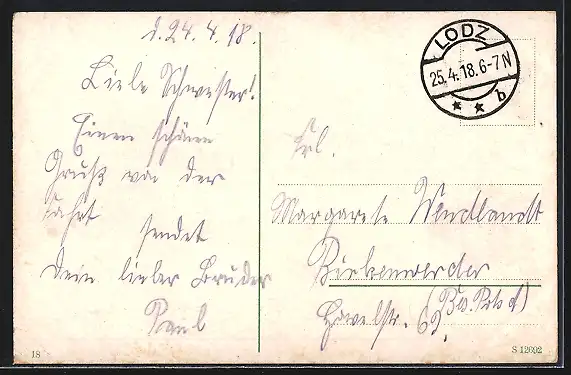 d. 24. 4. 18.
Liebe Schwester!
Einen schönen
Gruß von der
Fahrt sendet
Dein lieber Bruder
Paul
18
LODZ
25.4.18.6-7N
* * b
Frl.
Margarete Wendlandt
Birkenwerder
(Bez. Potsd)
Havelstr. 69.
S 12692